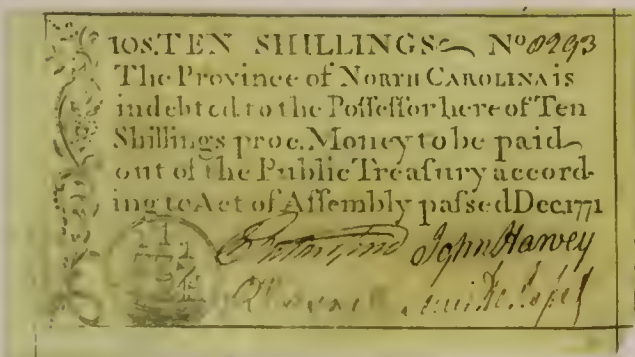 10S. TEN SHILLINGS No 8293
The Province of NORTH CAROLINA is
indebted to the Poſſeſſor here of Ten
Shillings proc. Money to be paid
out of the Public Treaſury accord-
ing to Act of Aſſembly paſsed Dec. 1771
John Harvey